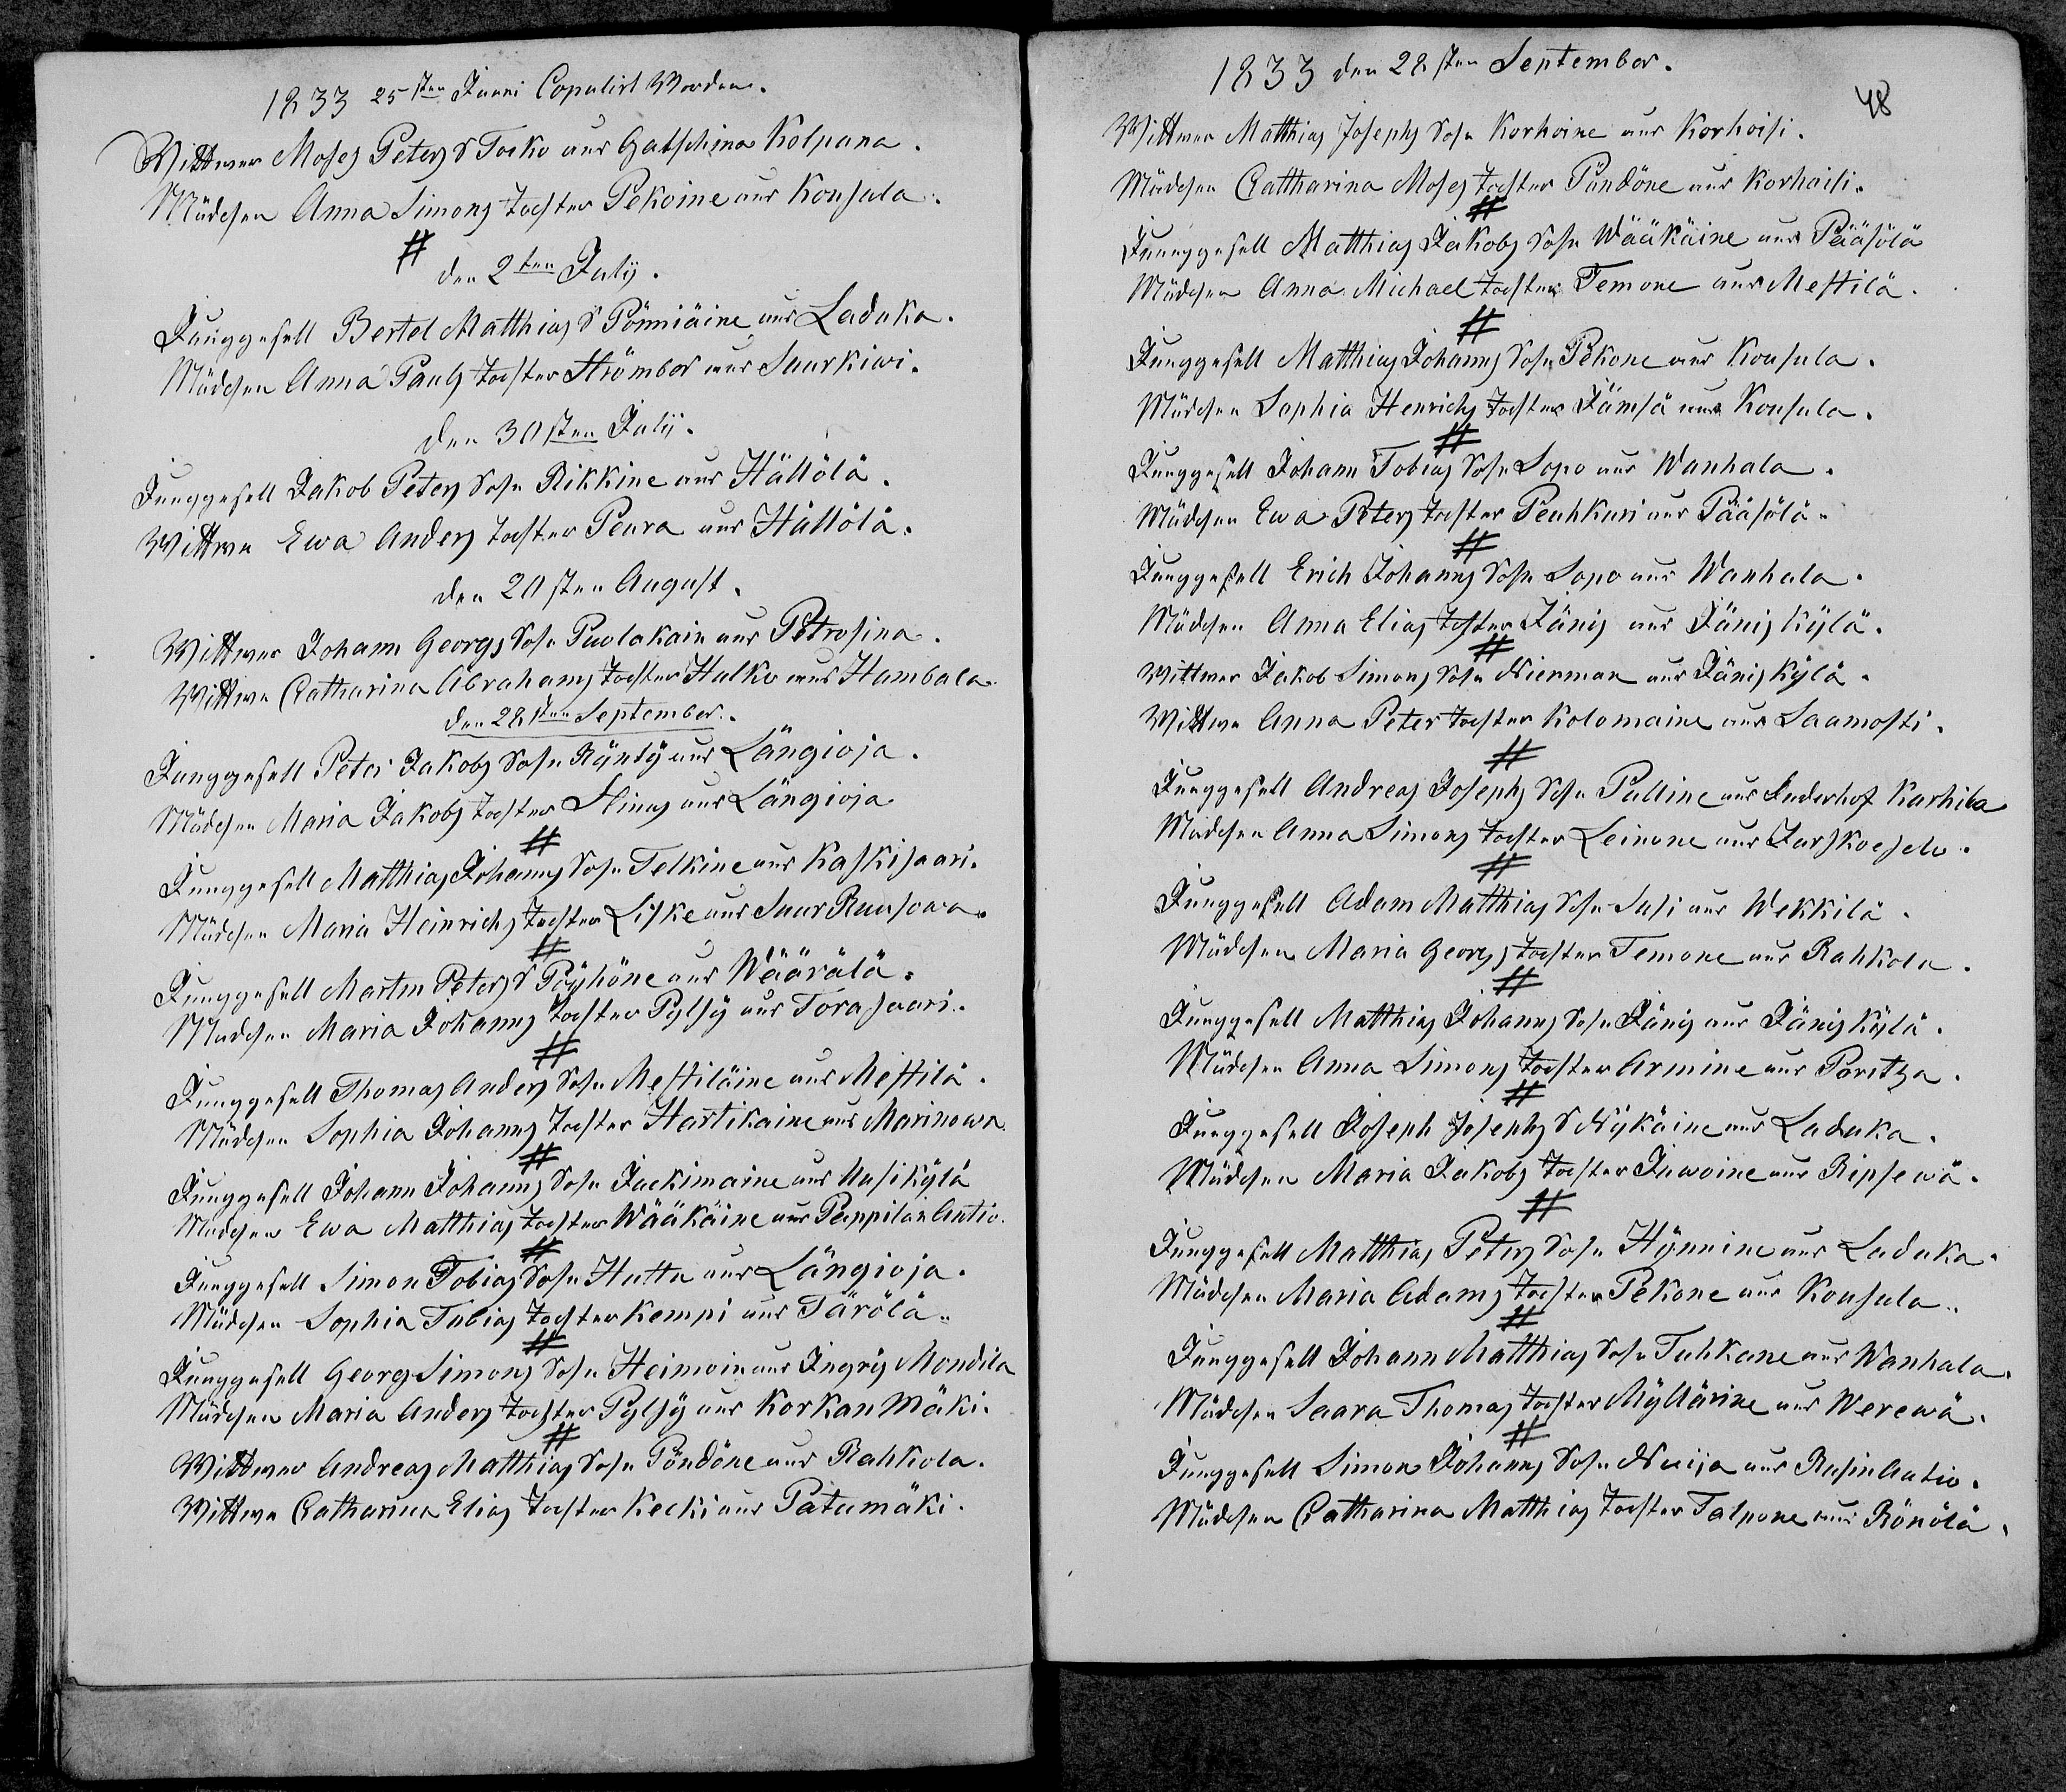 1833 25sten Junni Copulirt Worden.
Wittwer Moses Peters S Tocko aus Gatschina Kolpana.
Mädchen Anna Simons tochter Pekoine aus Konsula.
#
den 2ten July.
Junggesell Bertel Matthias S Pönniäine aus Laduka.
Mädchen Anna Pauls tochter Strömber aus Suurkiwi.
den 30sten July.
Junggesell Jakob Peters Sohn Rikkine aus Hällölä.
Wittwe Ewa Anders tochter Peura aus Hällölä.
den 20sten August.
Wittwer Johann Georgs Sohn Puolakain aus Petrosina.
Wittwe Catharina Abrahams tochter Hulko aus Humbala.
den 28sten September.
Junggesell Peter Jakobs Sohn Räntÿ aus Längioja.
Mädchen Maria Jakobs tochter Hinus aus Längioja
#
Junggesell Matthias Johanns Sohn Telkine aus Kaskisaari.
Mädchen Maria Heinrichs tochter Liske aus Suur Ruusowa.
#
Junggesell Martin Peters S Pöÿhöne aus Wäärälä.
Mädchen Maria Johanns tochter Pylsÿ aus Torasaari.
#
Junggesell Thomas Anders Sohn Mestiläine aus Mestilä.
Mädchen Sophia Johanns tochter Hartikaine aus Marinowa.
#
Junggesell Johann Johanns Sohn Jackimaine aus Uusikÿlä
Mädchen Ewa Matthias tochter Wääkäine aus Pappilan Autio.
#
Junggesell Simon Tobias Sohn Huttu aus Längioja.
Mädchen Sophia Tobias tochter Kempi aus Tärölä.
#
Junggesell Georg Simons Sohn Heimoin aus Ingris Mondila
Mädchen Maria Anders tochter Pylsÿ aus Korkan Mäki.
#
Wittwer Andreas Matthias Sohn Pöndöne aus Rahkola.
Wittwe Catharina Elias tochter Kecki aus Patumäki.
1833 den 28sten September.
48
Wittwer Matthias Josephs Sohn Korhoine aus Korhoisi.
Mädchen Cattharina Moses tochter Pöndöne aus Korhoisi.
#
Junggesell Matthias Jakobs Sohn Wääkäine aus Pääsölä
Mädchen Anna Michael tochter Temone aus Mestilä.
#
Junggesell Matthias Johanns Sohn Pekone aus Konsula.
Mädchen Sophia Henrichs tochter Jämsä aus Konsula.
#
Junggesell Johann Tobias Sohn Sopo aus Wanhala.
Mädchen Ewa Peters tochter Peuhkuri aus Pääsölä.
#
Junggesell Erich Johanns Sohn Sopo aus Wanhala.
Mädchen Anna Elias tochter Jänis aus Jänis Kÿlä.
#
Wittwer Jakob Simons Sohn Nierman aus Jänis Kÿlä.
Wittwe Anna Peter tochter Kolomaine aus Saamosti.
#
Junggesell Andreas Josephs Sohn Pulline aus Luderhof Karhila
Mädchen Anna Simons tochter Leinone aus Zarskoeselo.
#
Junggesell Adam Matthias Sohn Susi aus Wekkilä.
Mädchen Maria Georgs tochter Temone aus Rahkola.
#
Junggesell Matthias Johanns Sohn Jänis aus Jänis Kÿlä.
Mädchen Anna Simons tochter Armine aus Poritza.
#
Junggesell Joseph Josephs S Nÿkäine aus Laduka.
Mädchen Maria Jakobs tochter Juwoine aus Ripsewä.
#
Junggesell Matthias Peters Sohn Hÿnnine aus Laduka.
Mädchen Maria Adams tochter Pekone aus Konsula.
#
Junggesell Johann Matthias Sohn Tuhkane aus Wanhala.
Mädchen Saara Thomas tochter Mÿllärine aus Werewä.
#
Junggesell Simon Johanns Sohn Nuija aus Rusin Autio.
Mädchen Catharina Matthias tochter Talpone aus Rönölä.